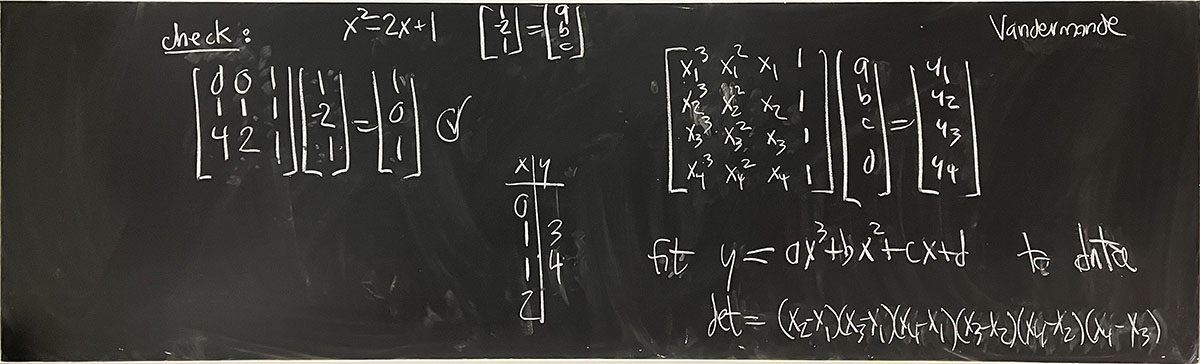 check: x²-2x+1 [1 -2 1] = [a b c]
[0 0 1; 1 1 1; 4 2 1] [1 -2 1] = [1 0 1] ✓
x | y
0 |
1 | 3
1 | 4
2 |
Vandermonde
[x₁³ x₁² x₁ 1; x₂³ x₂² x₂ 1; x₃³ x₃² x₃ 1; x₄³ x₄² x₄ 1] [a b c d] = [y₁ y₂ y₃ y₄]
fit y = ax³+bx²+cx+d to data
det = (x₂-x₁)(x₃-x₁)(x₄-x₁)(x₃-x₂)(x₄-x₂)(x₄-x₃)